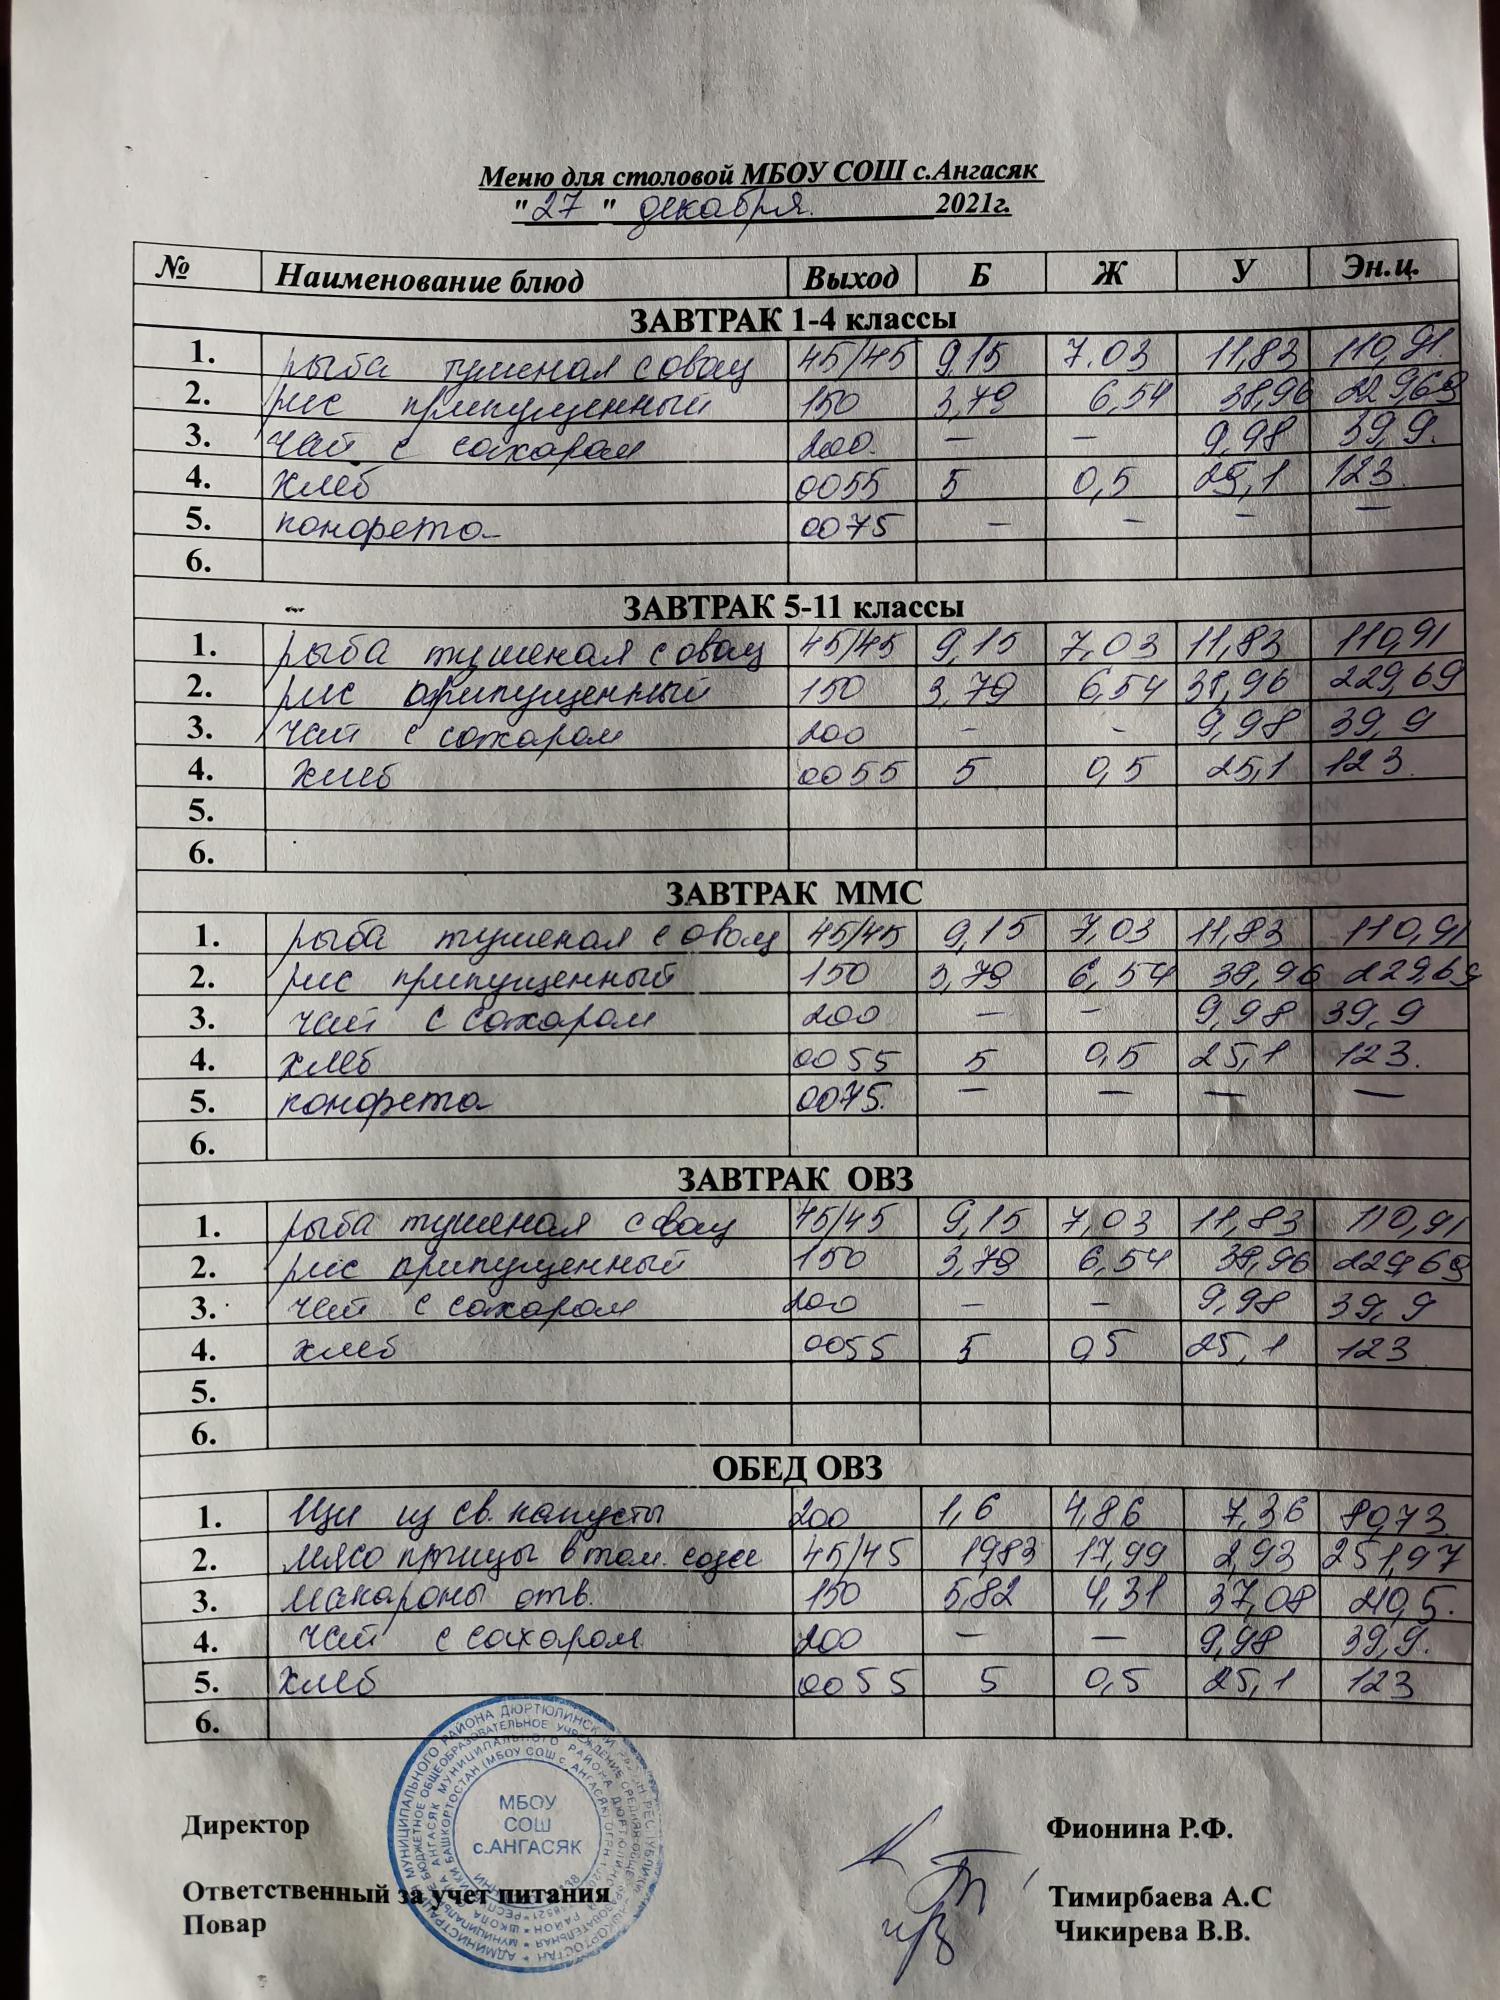 Меню для столовой МБОУ СОШ с.Ангасяк
"27" декабря. 2021г.
№ Наименование блюд Выход Б Ж У Эн.ц.
ЗАВТРАК 1-4 классы
1. рыба тушеная с овощ 45/45 9,15 7.03 11,83 110,91.
2. рис припущенный 150 3,79 6,54 38,96 229,69
3. чай с сахаром 200. — — 9,98 39,9.
4. хлеб 0055 5 0,5 25,1 123.
5. конфета 0075 — — — —
6.
ЗАВТРАК 5-11 классы
1. рыба тушеная с овощ 45/45 9,15 7,03 11,83 110,91
2. рис припущенный 150 3,79 6,54 38,96 229,69
3. чай с сахаром 200 — - 9,98 39,9
4. хлеб 0055 5 0,5 25,1 123.
5.
6.
ЗАВТРАК ММС
1. рыба тушеная с овощ 45/45 9,15 7,03 11,83 110,91
2. рис припущенный 150 3,79 6,54 38,96 229,69
3. чай с сахаром 200 — — 9,98 39,9
4. хлеб 0055 5 0,5 25,1 123.
5. конфета 0075. — — — —
6.
ЗАВТРАК ОВЗ
1. рыба тушеная с овощ 45/45 9,15 7,03 11,83 110,91
2. рис припущенный 150 3,79 6,54 38,96 229,69
3. чай с сахаром 200 — — 9,98 39,9
4. хлеб 0055 5 05 25,1 123
5.
6.
ОБЕД ОВЗ
1. Щи из св. капусты 200 1,6 4,86 7,36 80,73.
2. мясо птицы в том. соусе 45/45 19,83 17,99 2,93 251,97
3. макароны отв. 150 5,82 4,31 37,08 210,5.
4. чай с сахаром 200 — — 9,98 39,9.
5. хлеб 0055 5 0,5 25,1 123
6.
МБОУ
СОШ
с.АНГАСЯК
Директор Фионина Р.Ф.
Ответственный за учет питания Тимирбаева А.С
Повар Чикирева В.В.